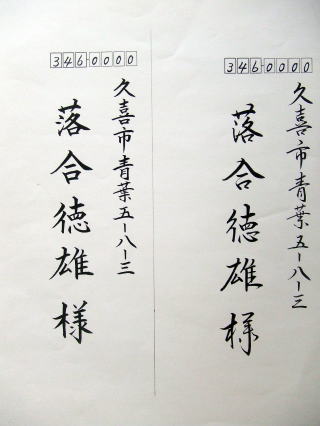 346-0000
久喜市青葉五-八-三
落合徳雄様
346-0000
久喜市青葉五-八-三
落合徳雄様